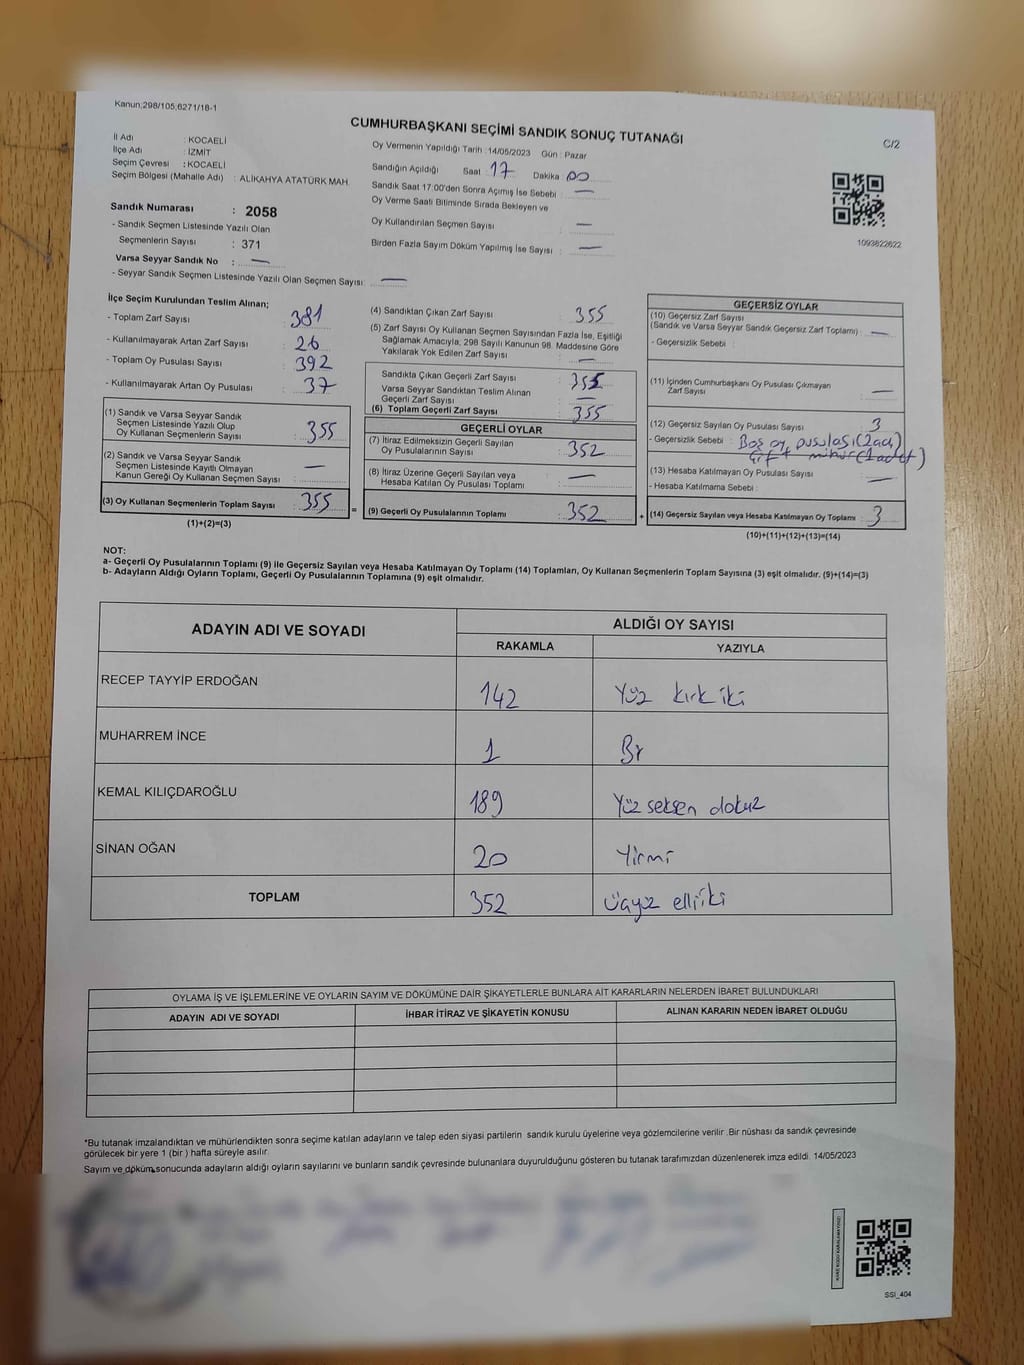 Kanun;298/105,6271/18-1
CUMHURBAŞKANI SEÇİMİ SANDIK SONUÇ TUTANAĞI
C/2
İl Adı : KOCAELİ
İlçe Adı : İZMİT
Seçim Çevresi : KOCAELİ
Seçim Bölgesi (Mahalle Adı) : ALİKAHYA ATATÜRK MAH.
Sandık Numarası : 2058
- Sandık Seçmen Listesinde Yazılı Olan
Seçmenlerin Sayısı : 371
Varsa Seyyar Sandık No : —
- Seyyar Sandık Seçmen Listesinde Yazılı Olan Seçmen Sayısı: —
Oy Vermenin Yapıldığı Tarih :14/05/2023 Gün : Pazar
Sandığın Açıldığı Saat 17 Dakika 00
Sandık Saat 17:00'den Sonra Açımış İse Sebebi : —
Oy Verme Saati Bitiminde Sırada Bekleyen ve
Oy Kullandırılan Seçmen Sayısı : —
Birden Fazla Sayım Döküm Yapılmış İse Sayısı : —
1093622622
İlçe Seçim Kurulundan Teslim Alınan;
- Toplam Zarf Sayısı : 381
- Kullanılmayarak Artan Zarf Sayısı : 26
- Toplam Oy Pusulası Sayısı : 392
- Kullanılmayarak Artan Oy Pusulası : 37
(1) Sandık ve Varsa Seyyar Sandık
Seçmen Listesinde Yazılı Olup
Oy Kullanan Seçmenlerin Sayısı : 355
(2) Sandık ve Varsa Seyyar Sandık
Seçmen Listesinde Kayıtlı Olmayan
Kanun Gereği Oy Kullanan Seçmen Sayısı : —
(3) Oy Kullanan Seçmenlerin Toplam Sayısı : 355
(1)+(2)=(3)
(4) Sandıktan Çıkan Zarf Sayısı : 355
(5) Zarf Sayısı Oy Kullanan Seçmen Sayısından Fazla İse, Eşitliği
Sağlamak Amacıyla, 298 Sayılı Kanunun 98. Maddesine Göre
Yakılarak Yok Edilen Zarf Sayısı : —
Sandıkta Çıkan Geçerli Zarf Sayısı : 355
Varsa Seyyar Sandıktan Teslim Alınan
Geçerli Zarf Sayısı : —
(6) Toplam Geçerli Zarf Sayısı : 355
GEÇERLİ OYLAR
(7) İtiraz Edilmeksizin Geçerli Sayılan
Oy Pusulalarının Sayısı : 352
(8) İtiraz Üzerine Geçerli Sayılan veya
Hesaba Katılan Oy Pusulası Toplamı : —
= (9) Geçerli Oy Pusulalarının Toplamı : 352
GEÇERSİZ OYLAR
(10) Geçersiz Zarf Sayısı
(Sandık ve Varsa Seyyar Sandık Geçersiz Zarf Toplamı) : —
- Geçersizlik Sebebi :
(11) İçinden Cumhurbaşkanı Oy Pusulası Çıkmayan
Zarf Sayısı : —
(12) Geçersiz Sayılan Oy Pusulası Sayısı : 3
- Geçersizlik Sebebi : Boş oy pusulası (2 adt)
Çift mühür (1 adet)
(13) Hesaba Katılmayan Oy Pusulası Sayısı : —
- Hesaba Katılmama Sebebi :
+ (14) Geçersiz Sayılan veya Hesaba Katılmayan Oy Toplamı : 3
(10)+(11)+(12)+(13)=(14)
NOT:
a- Geçerli Oy Pusulalarının Toplamı (9) ile Geçersiz Sayılan veya Hesaba Katılmayan Oy Toplamı (14) Toplamları, Oy Kullanan Seçmenlerin Toplam Sayısına (3) eşit olmalıdır. (9)+(14)=(3)
b- Adayların Aldığı Oyların Toplamı, Geçerli Oy Pusulalarının Toplamına (9) eşit olmalıdır.
ADAYIN ADI VE SOYADI ALDIĞI OY SAYISI
RAKAMLA YAZIYLA
RECEP TAYYİP ERDOĞAN 142 Yüz kırk iki
MUHARREM İNCE 1 Bir
KEMAL KILIÇDAROĞLU 189 Yüz seksen dokuz
SİNAN OĞAN 20 Yirmi
TOPLAM 352 Üçyüz elliiki
OYLAMA İŞ VE İŞLEMLERİNE VE OYLARIN SAYIM VE DÖKÜMÜNE DAİR ŞİKAYETLERLE BUNLARA AİT KARARLARIN NELERDEN İBARET BULUNDUKLARI
ADAYIN ADI VE SOYADI İHBAR İTİRAZ VE ŞİKAYETİN KONUSU ALINAN KARARIN NEDEN İBARET OLDUĞU
*Bu tutanak imzalandıktan ve mühürlendikten sonra seçime katılan adayların ve talep eden siyasi partilerin sandık kurulu üyelerine veya gözlemcilerine verilir .Bir nüshası da sandık çevresinde
görülecek bir yere 1 (bir ) hafta süreyle asılır.
Sayım ve döküm sonucunda adayların aldığı oyların sayılarını ve bunların sandık çevresinde bulunanlara duyurulduğunu gösteren bu tutanak tarafımızdan düzenlenerek imza edildi. 14/05/2023
KARE KODU KARALAMAYINIZ!
SSI_404